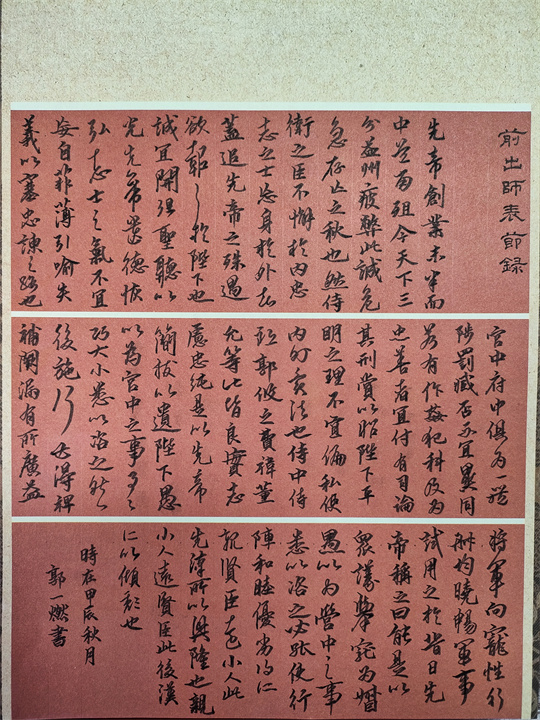 前出師表節錄
先帝創業未半而
中道崩殂今天下三
分益州疲弊此誠危
急存亡之秋也然侍
衛之臣不懈於內忠
志之士忘身於外者
蓋追先帝之殊遇
欲報之於陛下也
誠宜開張聖聽以
光先帝遺德恢
弘志士之氣不宜
妄自菲薄引喻失
義以塞忠諫之路也
宮中府中俱為一體
陟罰臧否不宜異同
若有作姦犯科及為
忠善者宜付有司論
其刑賞以昭陛下平
明之理不宜偏私使
內外異法也侍中侍
郎郭攸之費禕董
允等此皆良實志
慮忠純是以先帝
簡拔以遺陛下愚
以為宮中之事事之
巧大小悉以咨之然
後施行必得裨
補闕漏有所廣益
將軍向寵性行
淑均曉暢軍事
試用之於昔日先
帝稱之曰能是以
眾議舉寵為督
愚以為營中之事
悉以咨之必能使行
陣和睦優劣得所
親賢臣遠小人此
先漢所以興隆也親
小人遠賢臣此後漢
所以傾頹也
時在甲辰秋月
郭一燃書